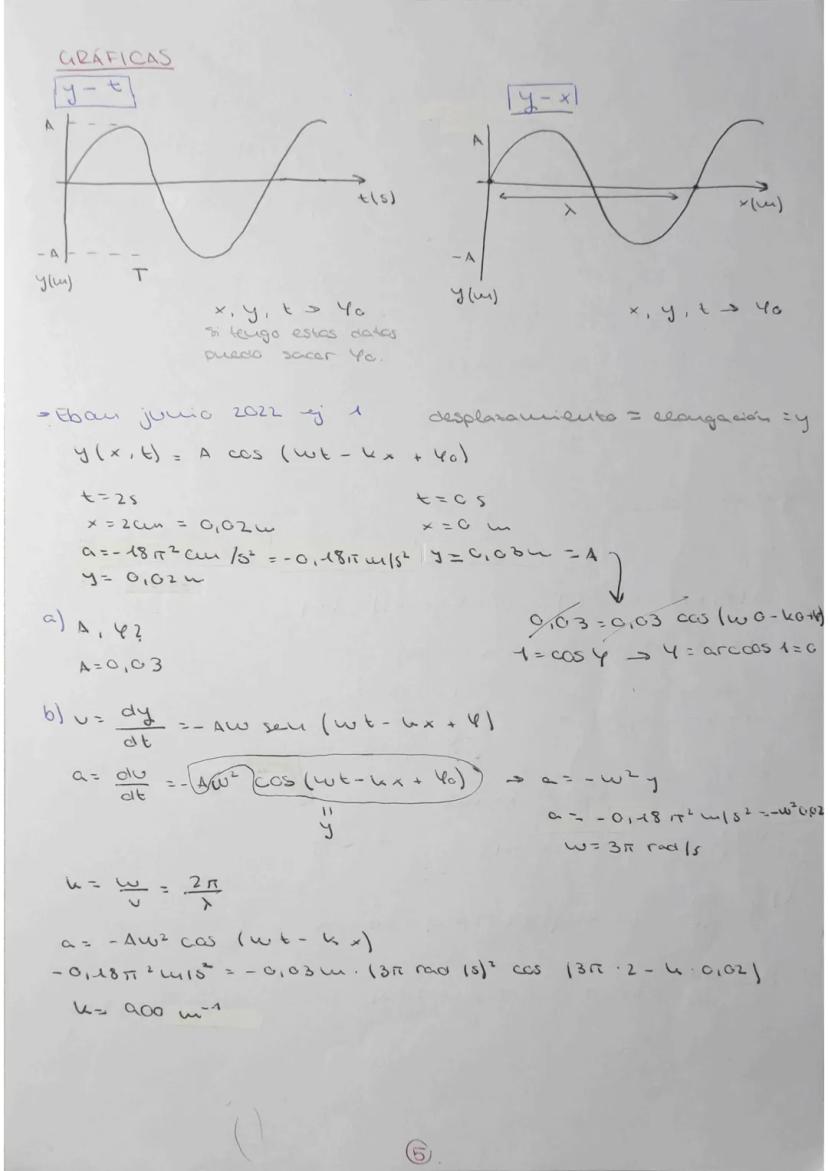 GRÁFICAS
y - t
A
t(s)
-A
y(m)
T
x, y, t → φ₀
si tengo estos datos
puedo sacar φ₀.
y - x
A
λ
x(m)
-A
y(m)
x, y, t → φ₀
→ Ebau junio 2022 ej 1
desplazamiento = elongación = y
y(x,t) = A cos (ωt - kx + φ₀)
t = 2s
x = 2cm = 0,02m
a = -18π² cm/s² = -0,18π m/s²
y = 0,02m
t = 0 s
x = 0 m
y = 0,03m = A
a) A, φ?
A = 0,03
0,03 = 0,03 cos (ω0 - k0 +
1 = cos φ → φ = arccos 1 = 0
b) v = dy/dt = - Aω sen (ωt - kx + φ)
a = dv/dt = - Aω² cos (ωt - kx + φ₀) → a = -ω² y
=
y
a = -0,18π² m/s² = -ω² 0,02
ω = 3π rad/s
k = ω/v = 2π/λ
a = -Aω² cos (ωt - kx)
-0,18π² m/s² = -0,03m · (3π rad/s)² cos (3π · 2 - k · 0,02)
k = 900 m⁻¹
5